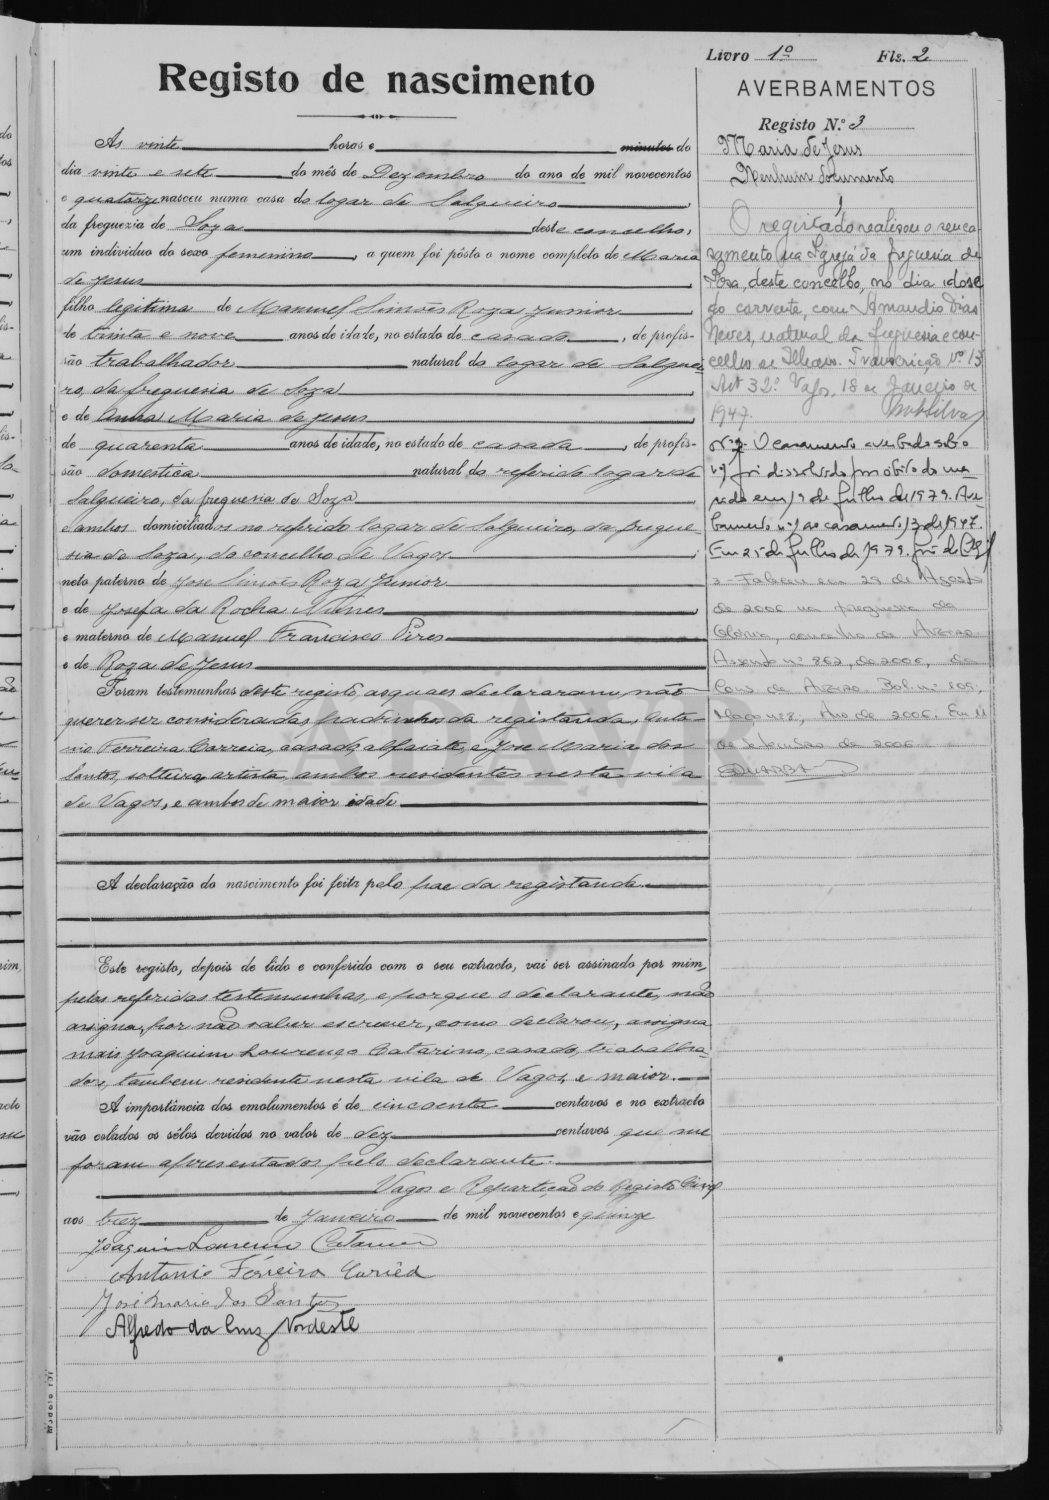 Livro 1º Fls. 2
Registo de nascimento
AVERBAMENTOS
Registo N.º 3
Maria de Jesus
Nenhum documento
As vinte horas e minutos do
dia vinte e sete do mês de Dezembro do ano de mil novecentos
e quatorze nasceu numa casa do logar de Salgueiro
da freguezia de Soza deste concelho,
um individuo do sexo femenino, a quem foi pôsto o nome completo de Maria
de Jesus
filho legitima de Manuel Simões Roza Junior
de trinta e nove anos de idade, no estado de casado, de profis-
são trabalhador natural do logar de Salguei-
ro, da freguesia de Soza
e de Anna Maria de Jesus
de quarenta anos de idade, no estado de casada, de profis-
são domestica natural do referido logar de
Salgueiro, da freguesia de Soza
e ambos domiciliados no referido logar de Salgueiro, da fregue-
sia de Soza, do concelho de Vagos
neto paterno de José Simões Roza Junior
e de Josefa da Rocha Nunes
e materno de Manuel Francisco Pires
e de Roza de Jesus
Foram testemunhas deste registo, as quaes declararam não
querer ser consideradas padrinhos da registanda, Anto-
nio Ferreira Correia, casado, alfaiate, e José Maria dos
Santos, solteiro, artista, ambos residentes nesta vila
de Vagos, e ambos de maior idade
A declaração do nascimento foi feita pelo pae da registanda.
Este registo, depois de lido e conferido com o seu extracto, vai ser assinado por mim,
pelas referidas testemunhas, e porque o declarante não
assigna, por não saber escrever, como declarou, assigna
mais Joaquim Lourenço Catarino, casado, trabalha-
dor, tambem residente nesta vila de Vagos, e maior.
A importância dos emolumentos é de cincoenta centavos e no extracto
vão colados os sêlos devidos no valor de dez centavos que me
foram apresentados pelo declarante.
Vagos e Repartição do Registo Civil
aos trez de Janeiro de mil novecentos e quinze
Joaquim Lourenço Catarino
Antonio Ferreira Correia
José Maria dos Santos
Alfredo da Cruz Nordeste
1
O registado realisou o seu ca-
samento na Igreja da freguesia de
Soza, deste concelho, no dia doze
do corrente, com Amandio Dias
Neves, natural da freguesia e con-
celho de Ilhavo. Transcrição nº 13
Art 32º. Vagos, 18 de Janeiro de
1947.
Nº 2 O casamento averbado sob o
nº 1 foi dissolvido por óbito do ma-
rido em 19 de Julho de 1979. Aver-
bamento nº 1 ao casamento 13 de 1947.
Em 25 de Julho de 1979.
3 - Faleceu em 29 de Agosto
de 2006 na freguesia da
Glória, concelho de Aveiro
Assento nº 862, de 2006, da
Cons. de Aveiro. Bol. nº 809,
Maço nº 8, Ano de 2006. Em 11
de Setembro de 2006
ADAVR
Modelo